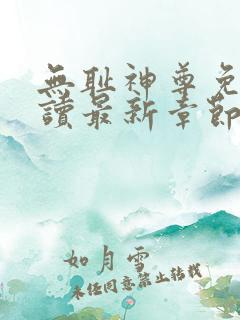 無耻神尊免
讀最新章節
如月雪
未经同意禁止转载